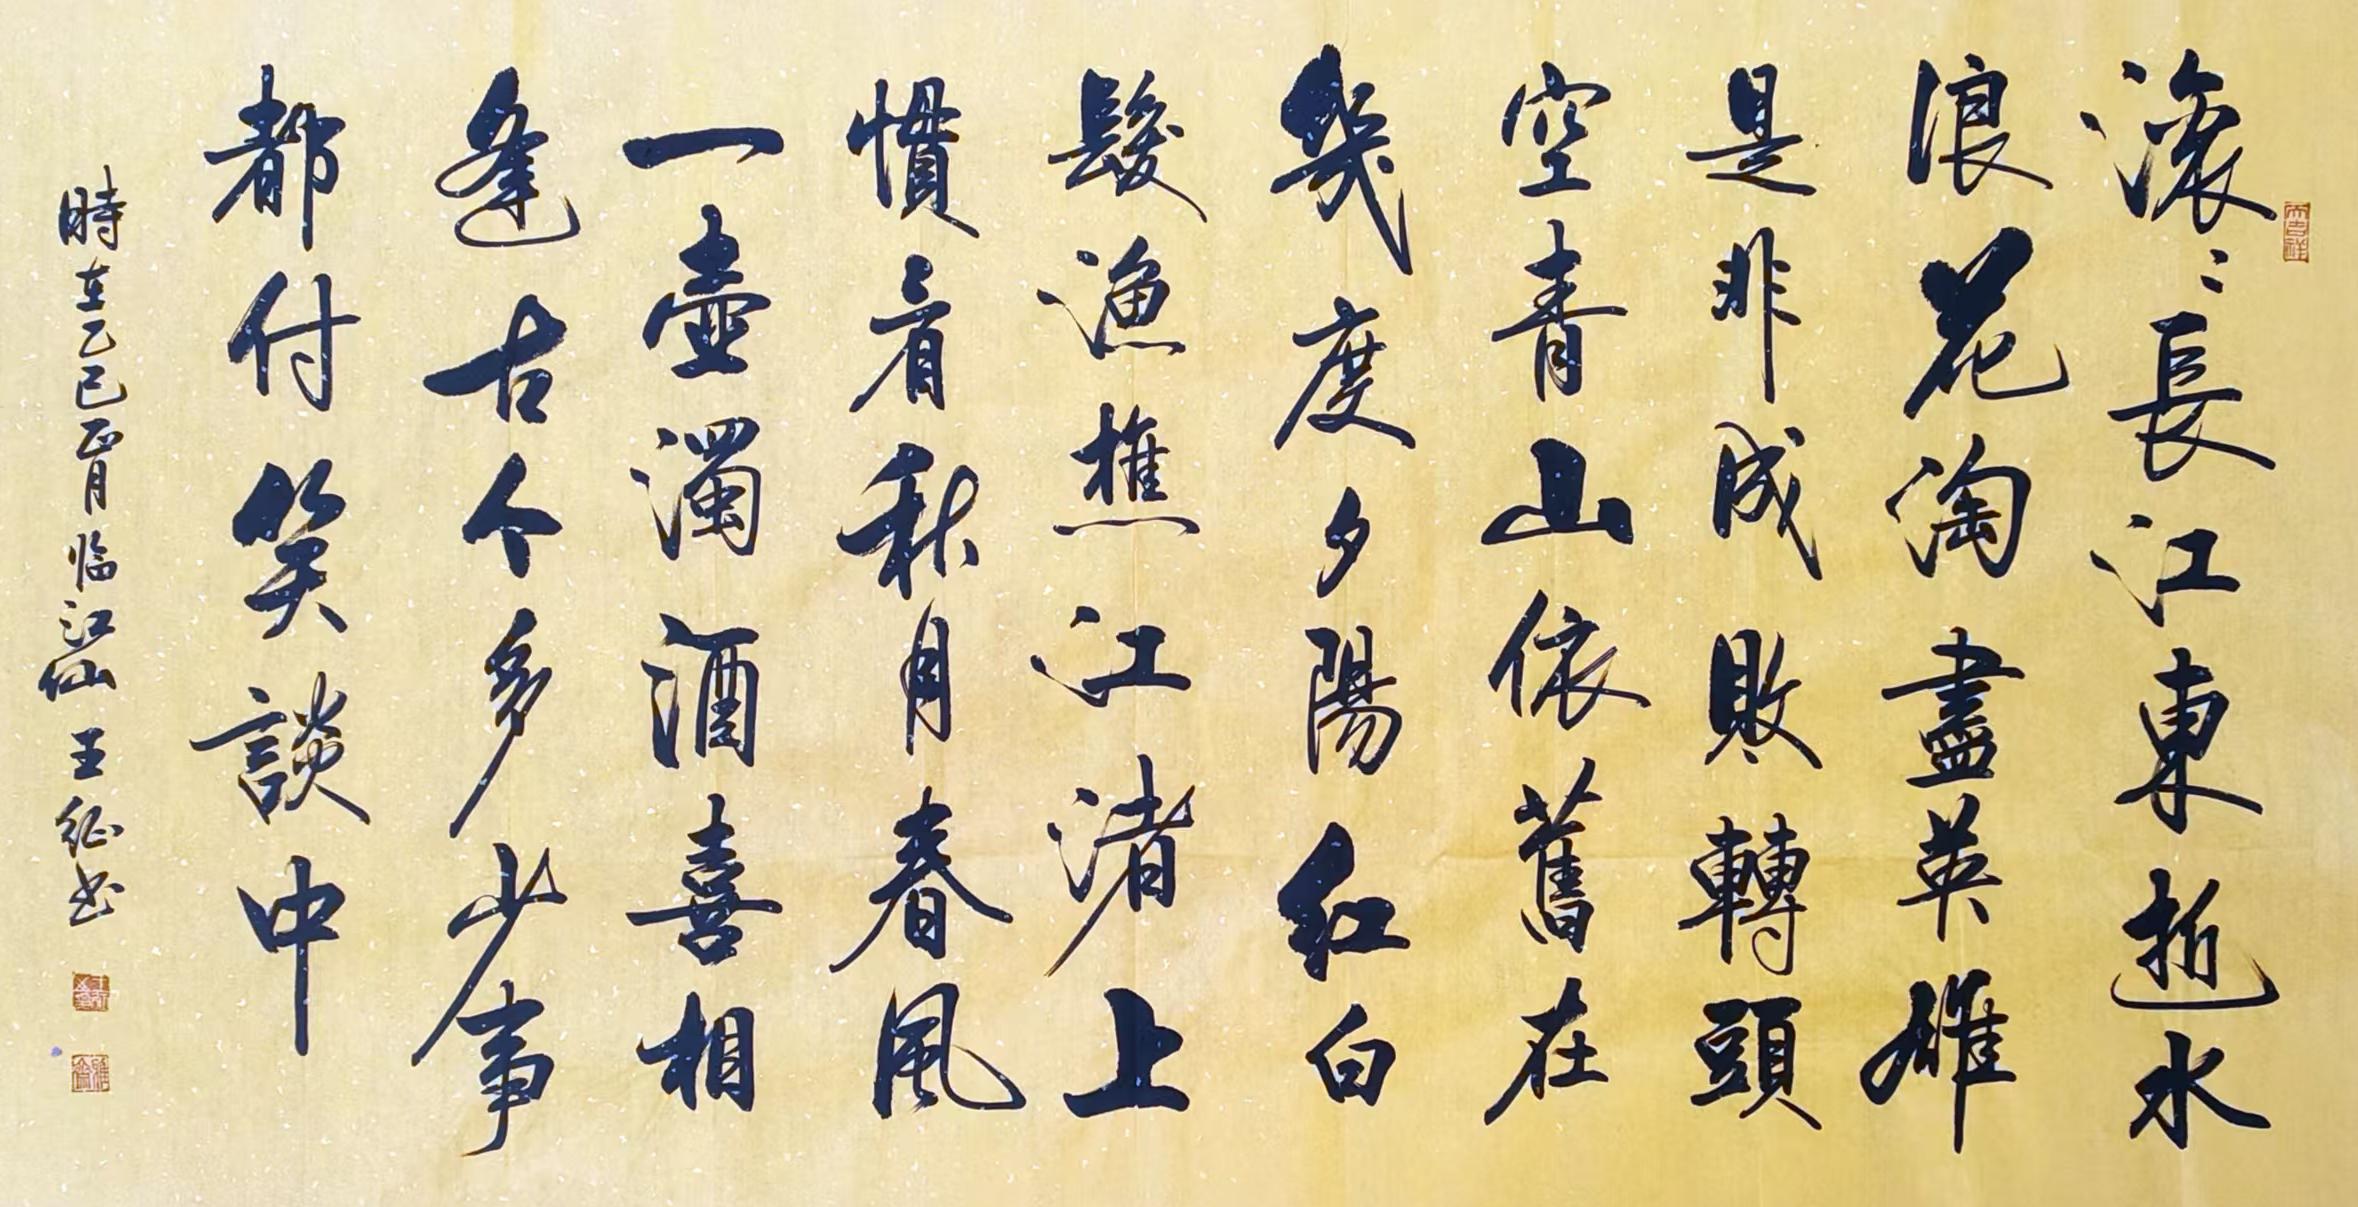 滚〻長江東逝水
浪花淘盡英雄
是非成敗轉頭
空青山依舊在
幾度夕陽紅白
髮漁樵江渚上
慣看秋月春風
一壺濁酒喜相
逢古今多少事
都付笑談中
時在乙巳正月临江仙王征书